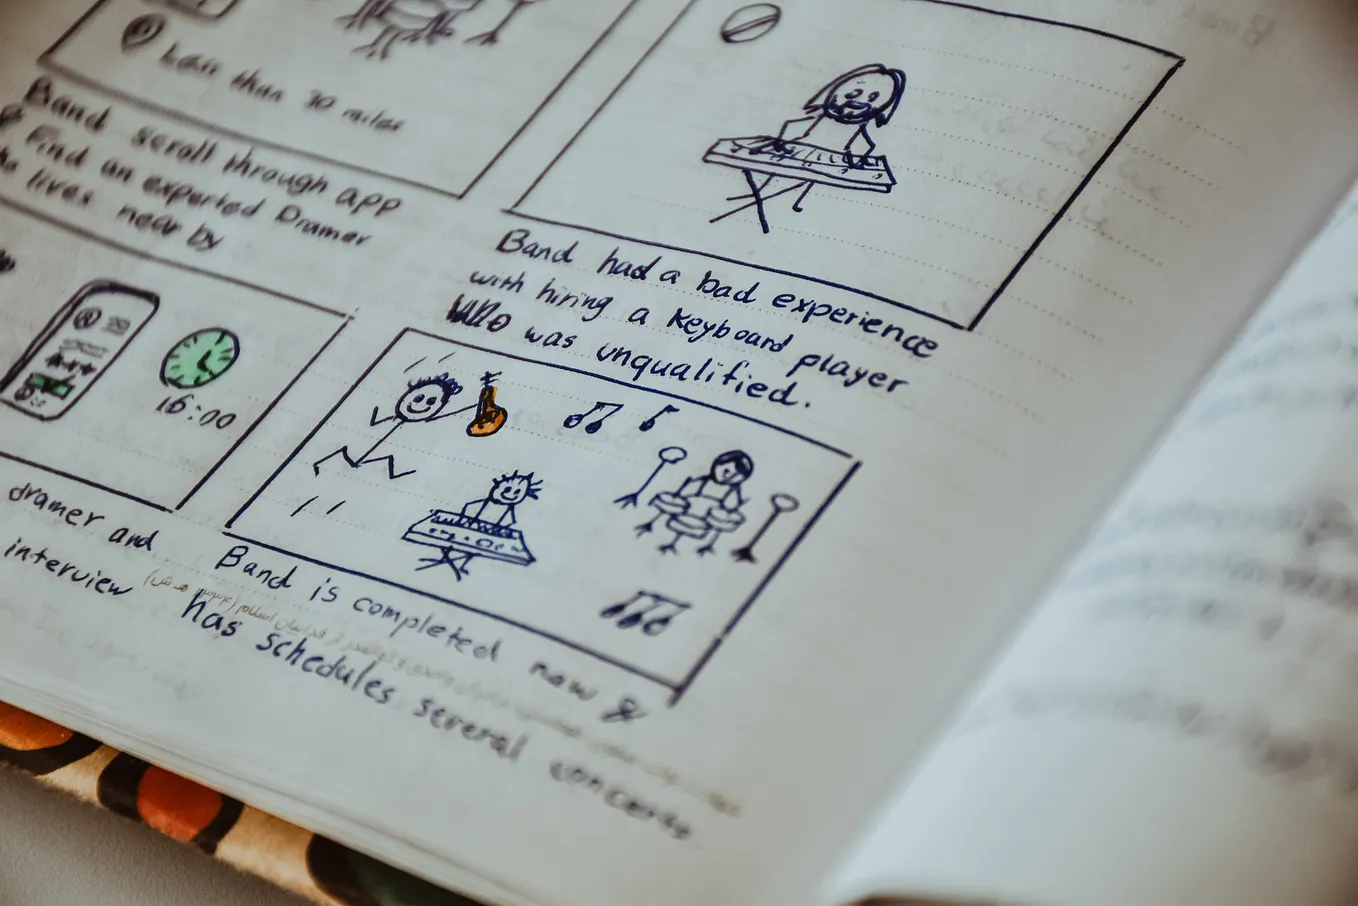 Less than 30 miles
Band scroll through app
Find an experted Dramer
lives near by
Band had a bad experience
with hiring a Keyboard player
who was unqualified.
16:00
dramer and
interview
Band is completed now &
has schedules several concerts